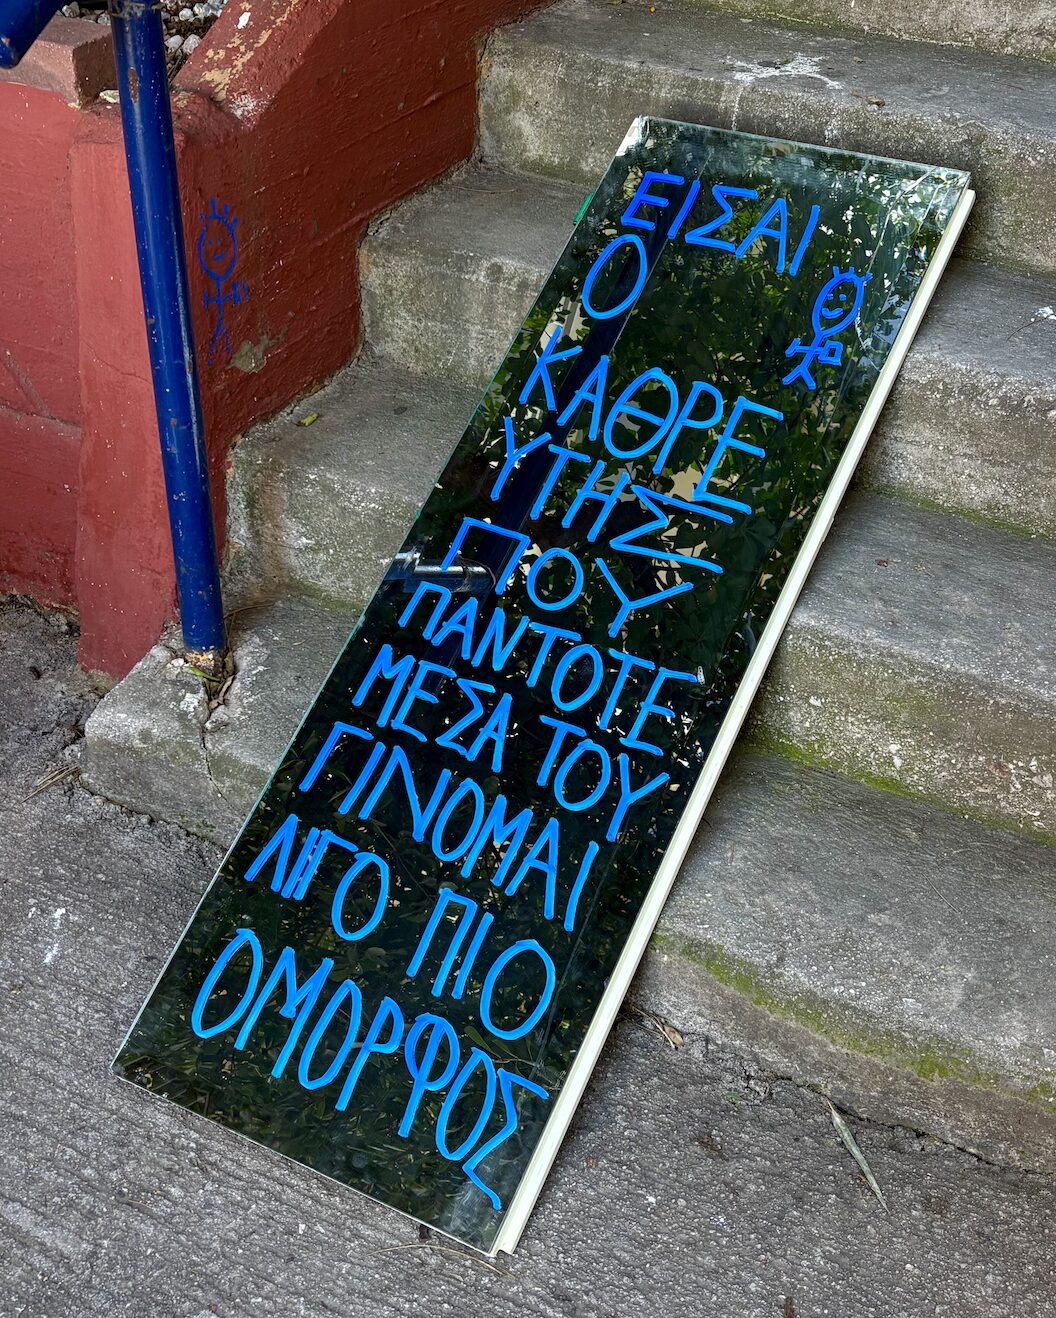 ΕΙΣΑΙ
Ο
ΚΑΘΡΕ
ΥΤΗΣ
ΠΟΥ
ΠΑΝΤΟΤΕ
ΜΕΣΑ ΤΟΥ
ΓΙΝΟΜΑΙ
ΛΙΓΟ ΠΙΟ
ΟΜΟΡΦΟΣ